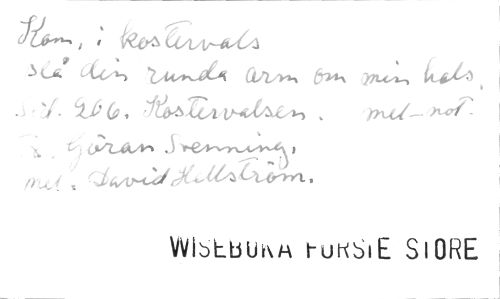 Kom, i kostervals
slå din runda arm om min hals,
sid. 206. Kostervalsen. mel-not.
Tx. Göran Svenning,
mel. David Hellström.
WISEBOKA FORSTE STORE